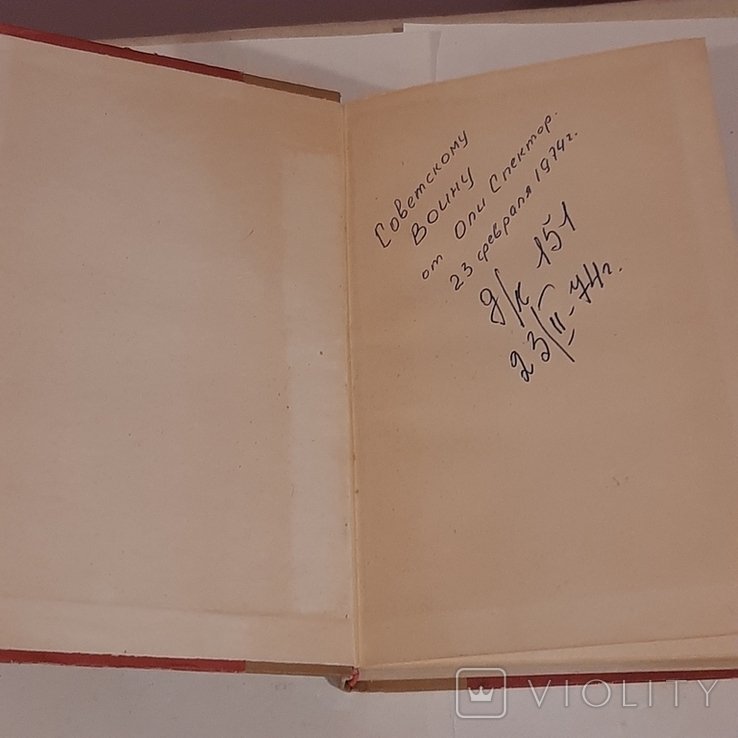 Советскому
Воину
от Оли Спектор.
23 февраля 1974г.
д/к 151
23/II-74г.
VIOLITY